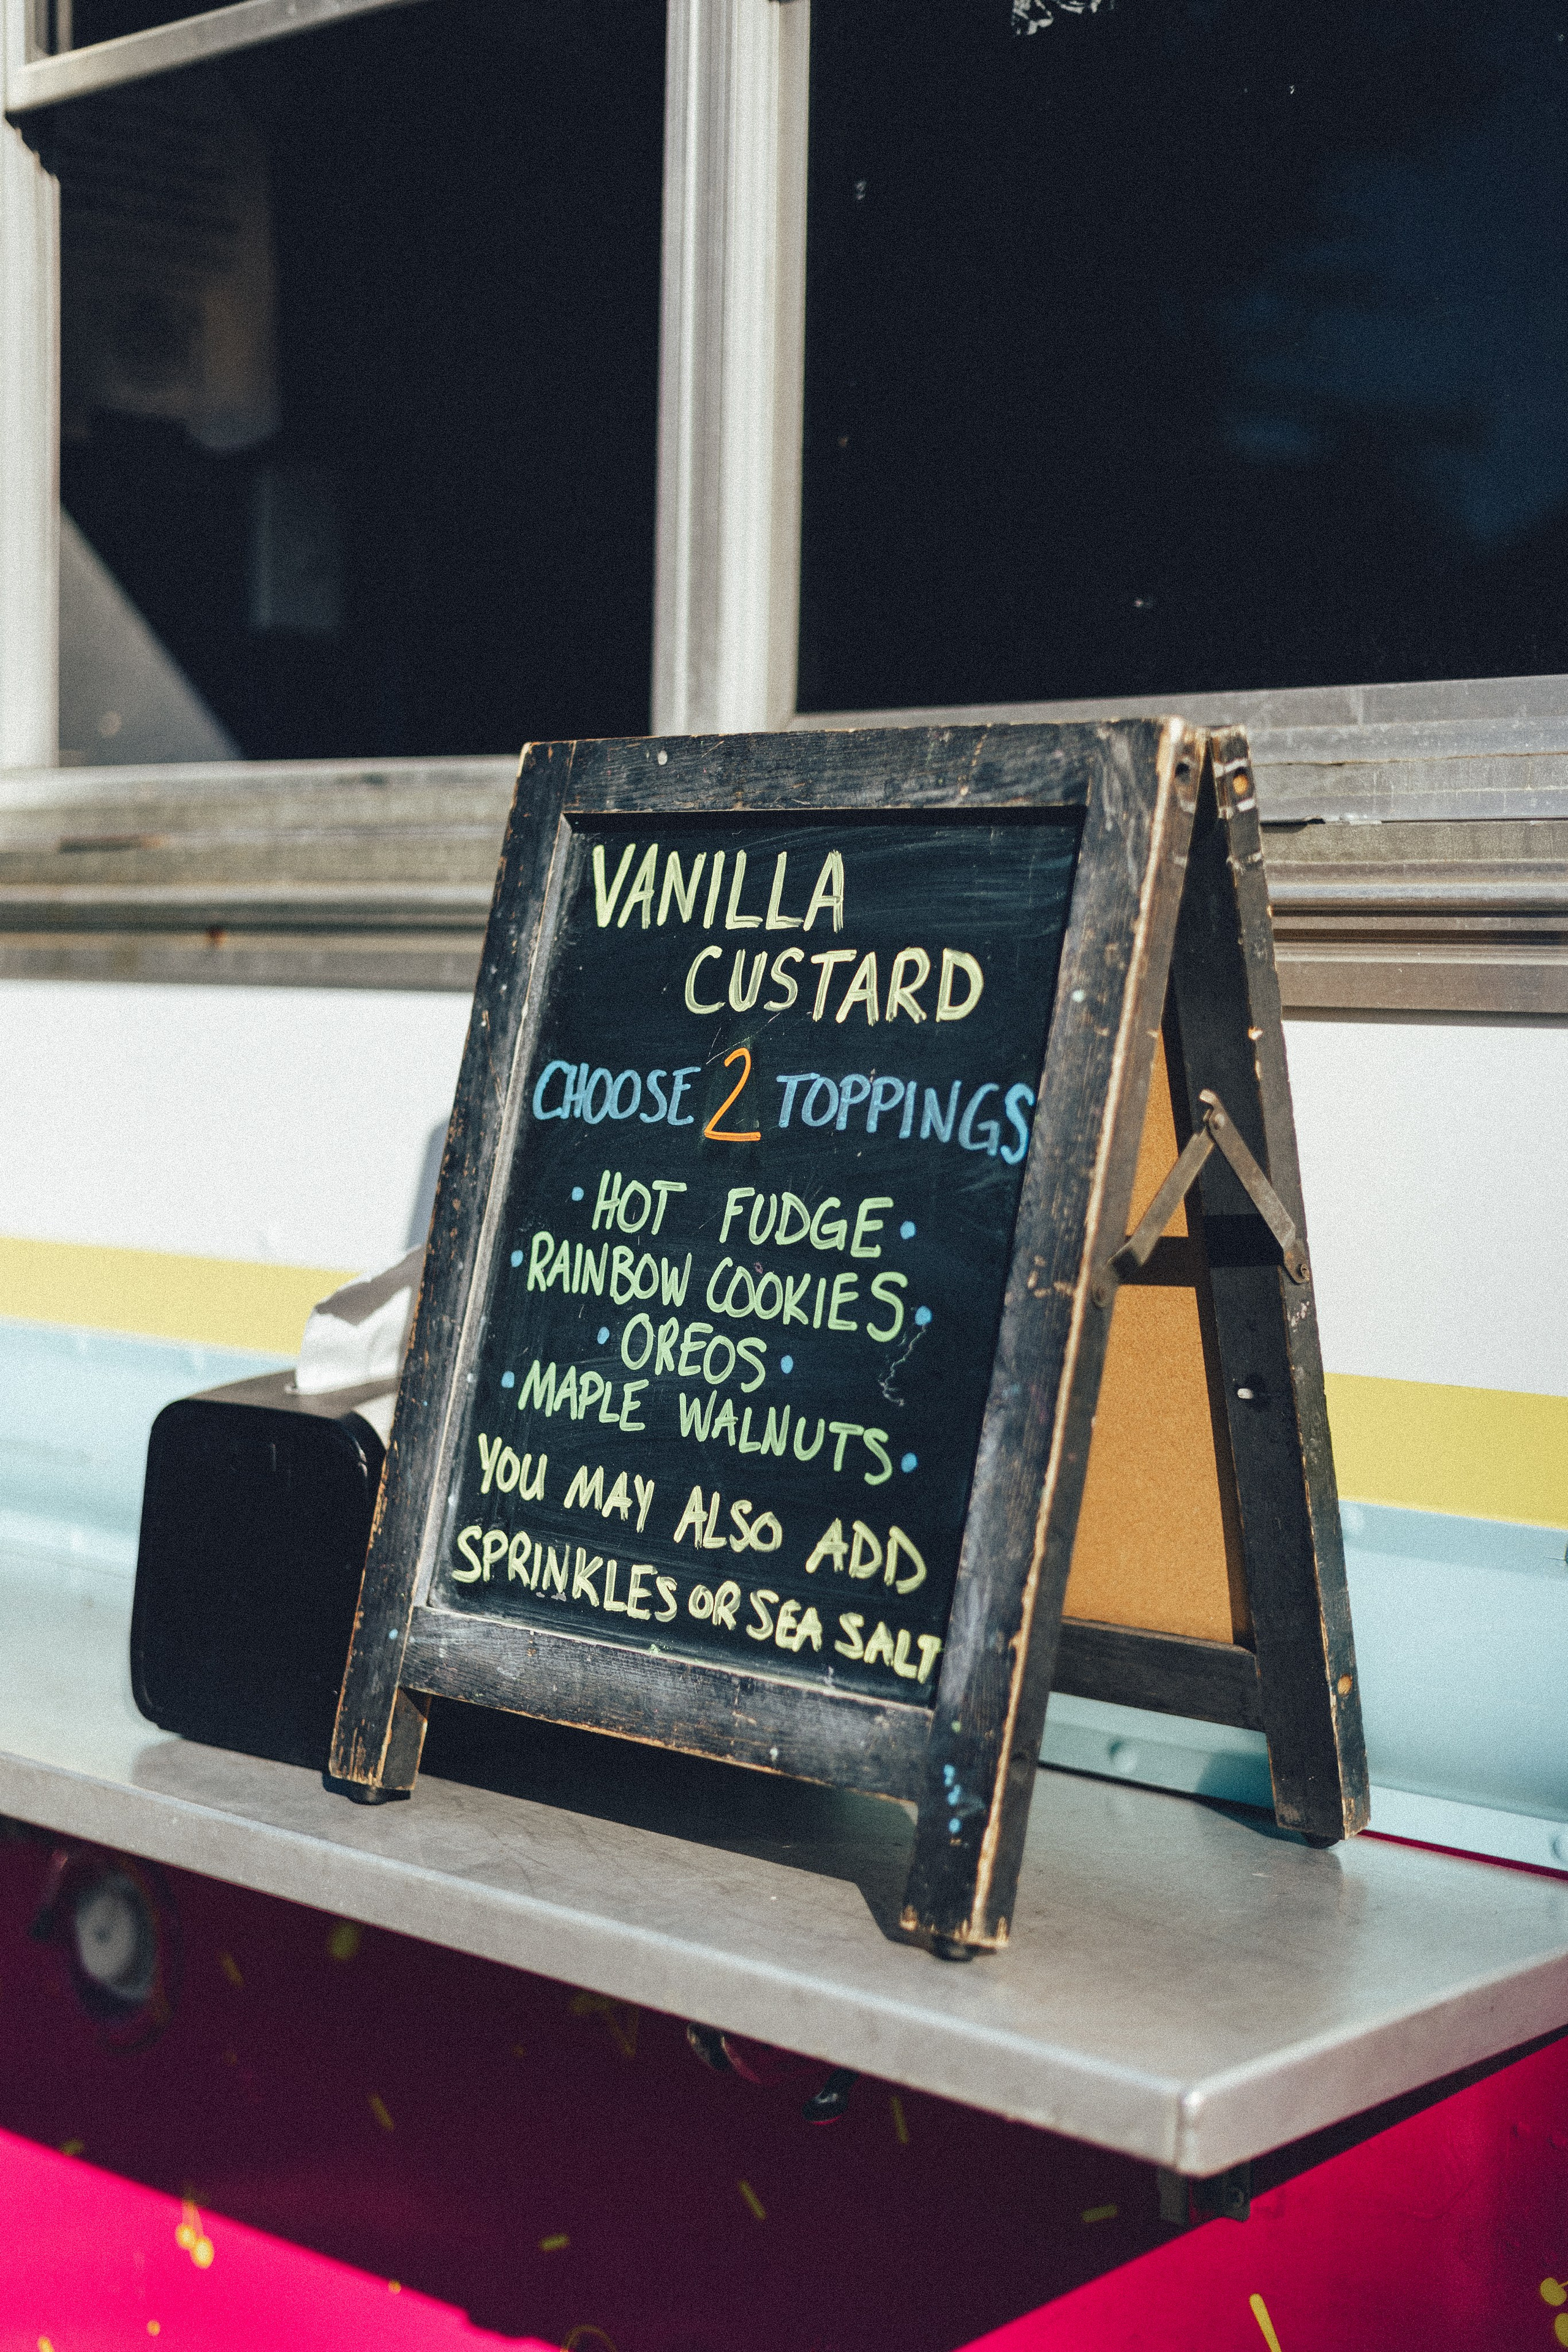 VANILLA
CUSTARD
CHOOSE 2 TOPPINGS
• HOT FUDGE •
• RAINBOW COOKIES •
• OREOS •
• MAPLE WALNUTS •
YOU MAY ALSO ADD
SPRINKLES OR SEA SALT